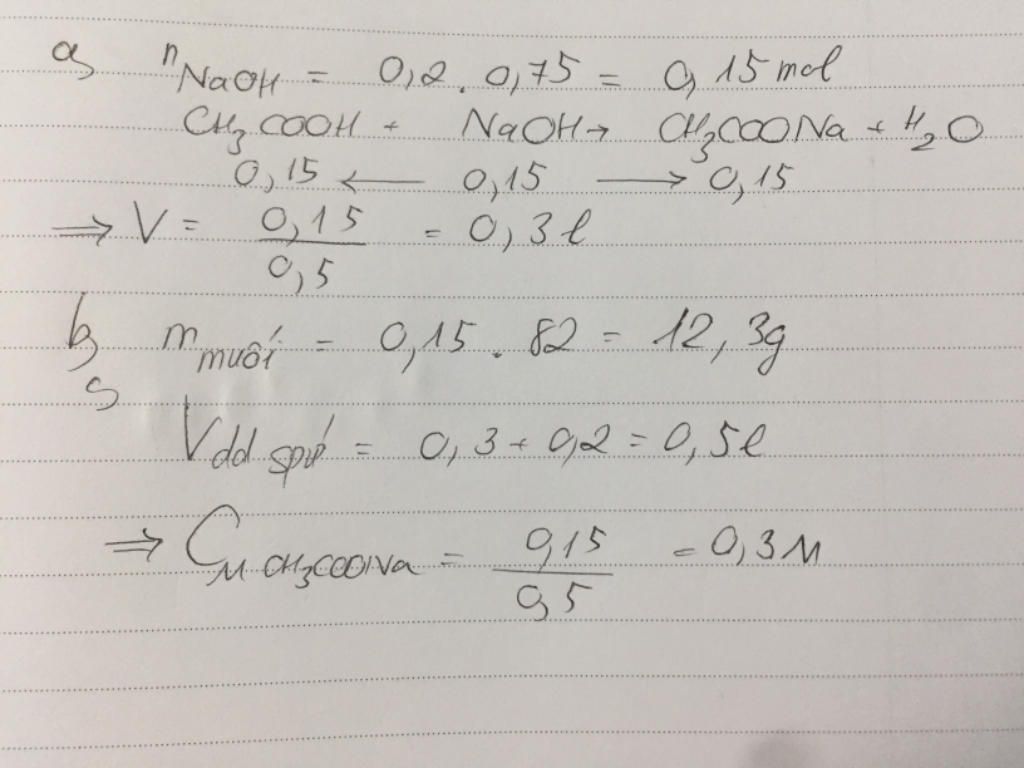 a, nNaOH = 0,2 . 0,75 = 0,15 mol
CH3COOH + NaOH → CH3COONa + H2O
0,15 ← 0,15 → 0,15
⇒ V = 0,15/0,5 = 0,3 l
b, m muối = 0,15 . 82 = 12,3g
c,
Vdd spứ = 0,3 + 0,2 = 0,5 l
⇒ CM CH3COONa = 0,15/0,5 = 0,3 M